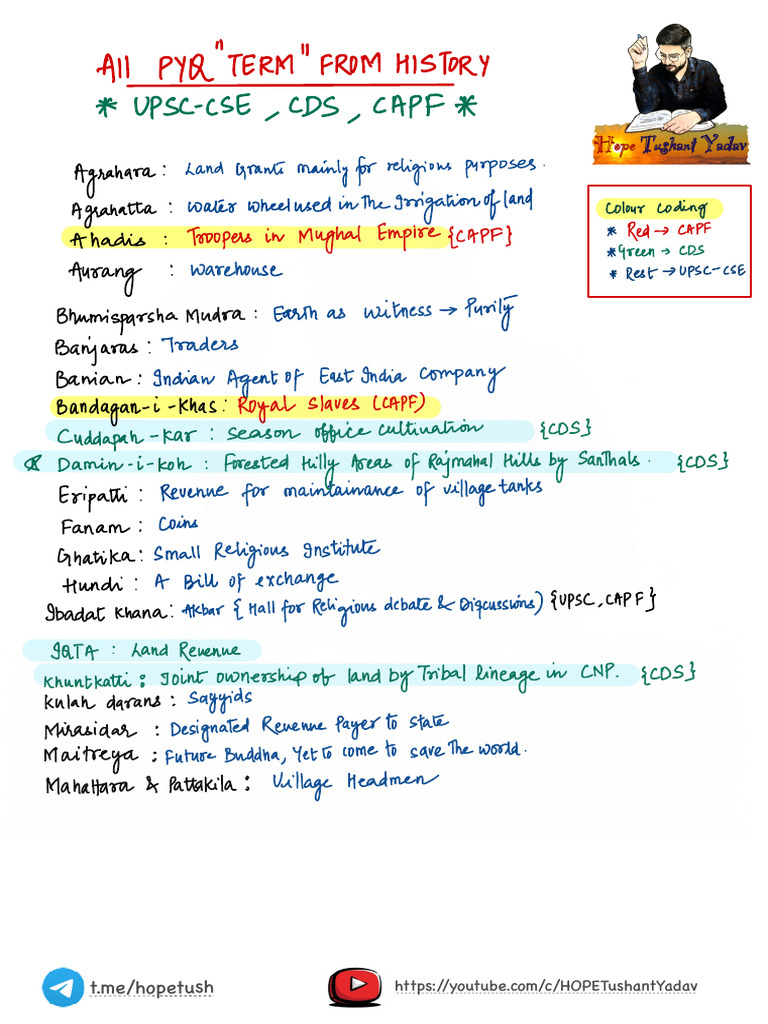 All PYQ "TERM" FROM HISTORY
* UPSC-CSE, CDS, CAPF *
Hope Tushant Yadav
Colour Coding
* Red → CAPF
* Green → CDS
* Rest → UPSC-CSE
Agrahara: Land Grants mainly for religious purposes.
Agrahatta: Water wheel used in the Irrigation of land
Ahadis: Troopers in Mughal Empire {CAPF}
Aurang: Warehouse
Bhumisparsha Mudra: Earth as witness → Purity
Banjaras: Traders
Banian: Indian Agent of East India Company
Bandagan-i-Khas: Royal Slaves (CAPF)
Cuddapah-kar: season office cultivation {CDS}
* Damin-i-koh: Forested Hilly Areas of Rajmahal Hills by Santhals. {CDS}
Eripatti: Revenue for maintainance of village tanks
Fanam: Coins
Ghatika: Small Religious Institute
Hundi: A Bill of exchange
Ibadat Khana: Akbar { Hall for Religious debate & Disqcussions) {UPSC, CAPF}
IQTA: Land Revenue
Khuntkatti: Joint ownership of land by Tribal lineage in CNP. {CDS}
Kulah darans: Sayyids
Mirasidar: Designated Revenue Payer to State
Maitreya: Future Buddha, Yet to come to save The world.
Mahattara & Pattakila: Village Headmen
t.me/hopetush
https://youtube.com/c/HOPETushantYadav